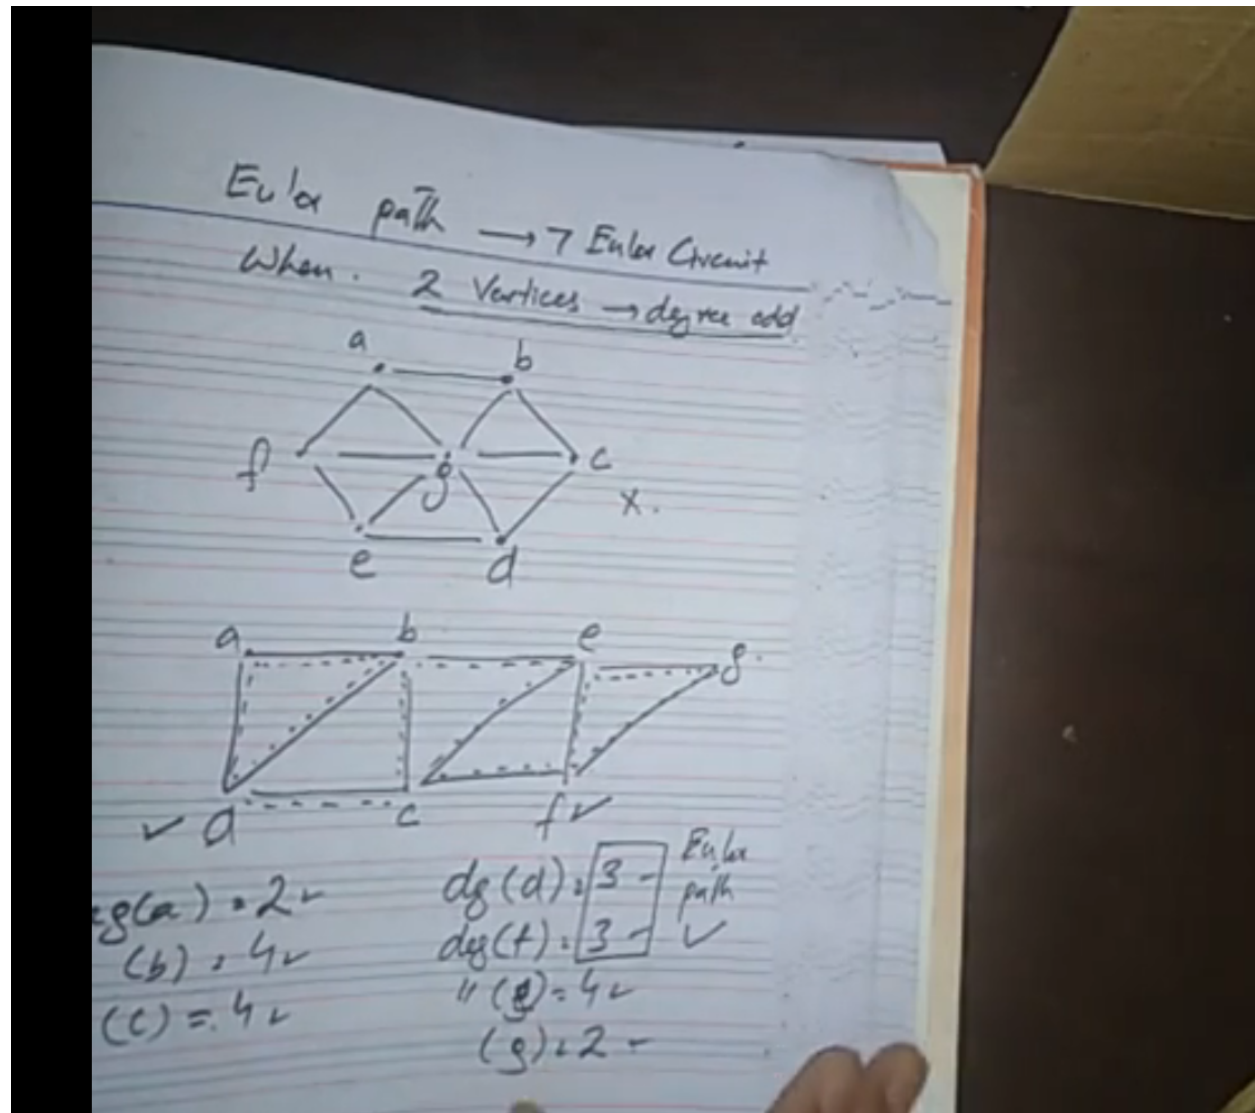 Euler path → 7 Euler Circuit
When. 2 Vertices → degree odd
a b
f g c
x.
e d
a b e g.
✓ d c f ✓
eg(a) = 2 ✓
(b) = 4 ✓
(c) = 4 ✓
dg(d) = 3 -
deg(f) = 3 -
Euler
path
✓
" (e) = 4 ✓
(g) = 2 -